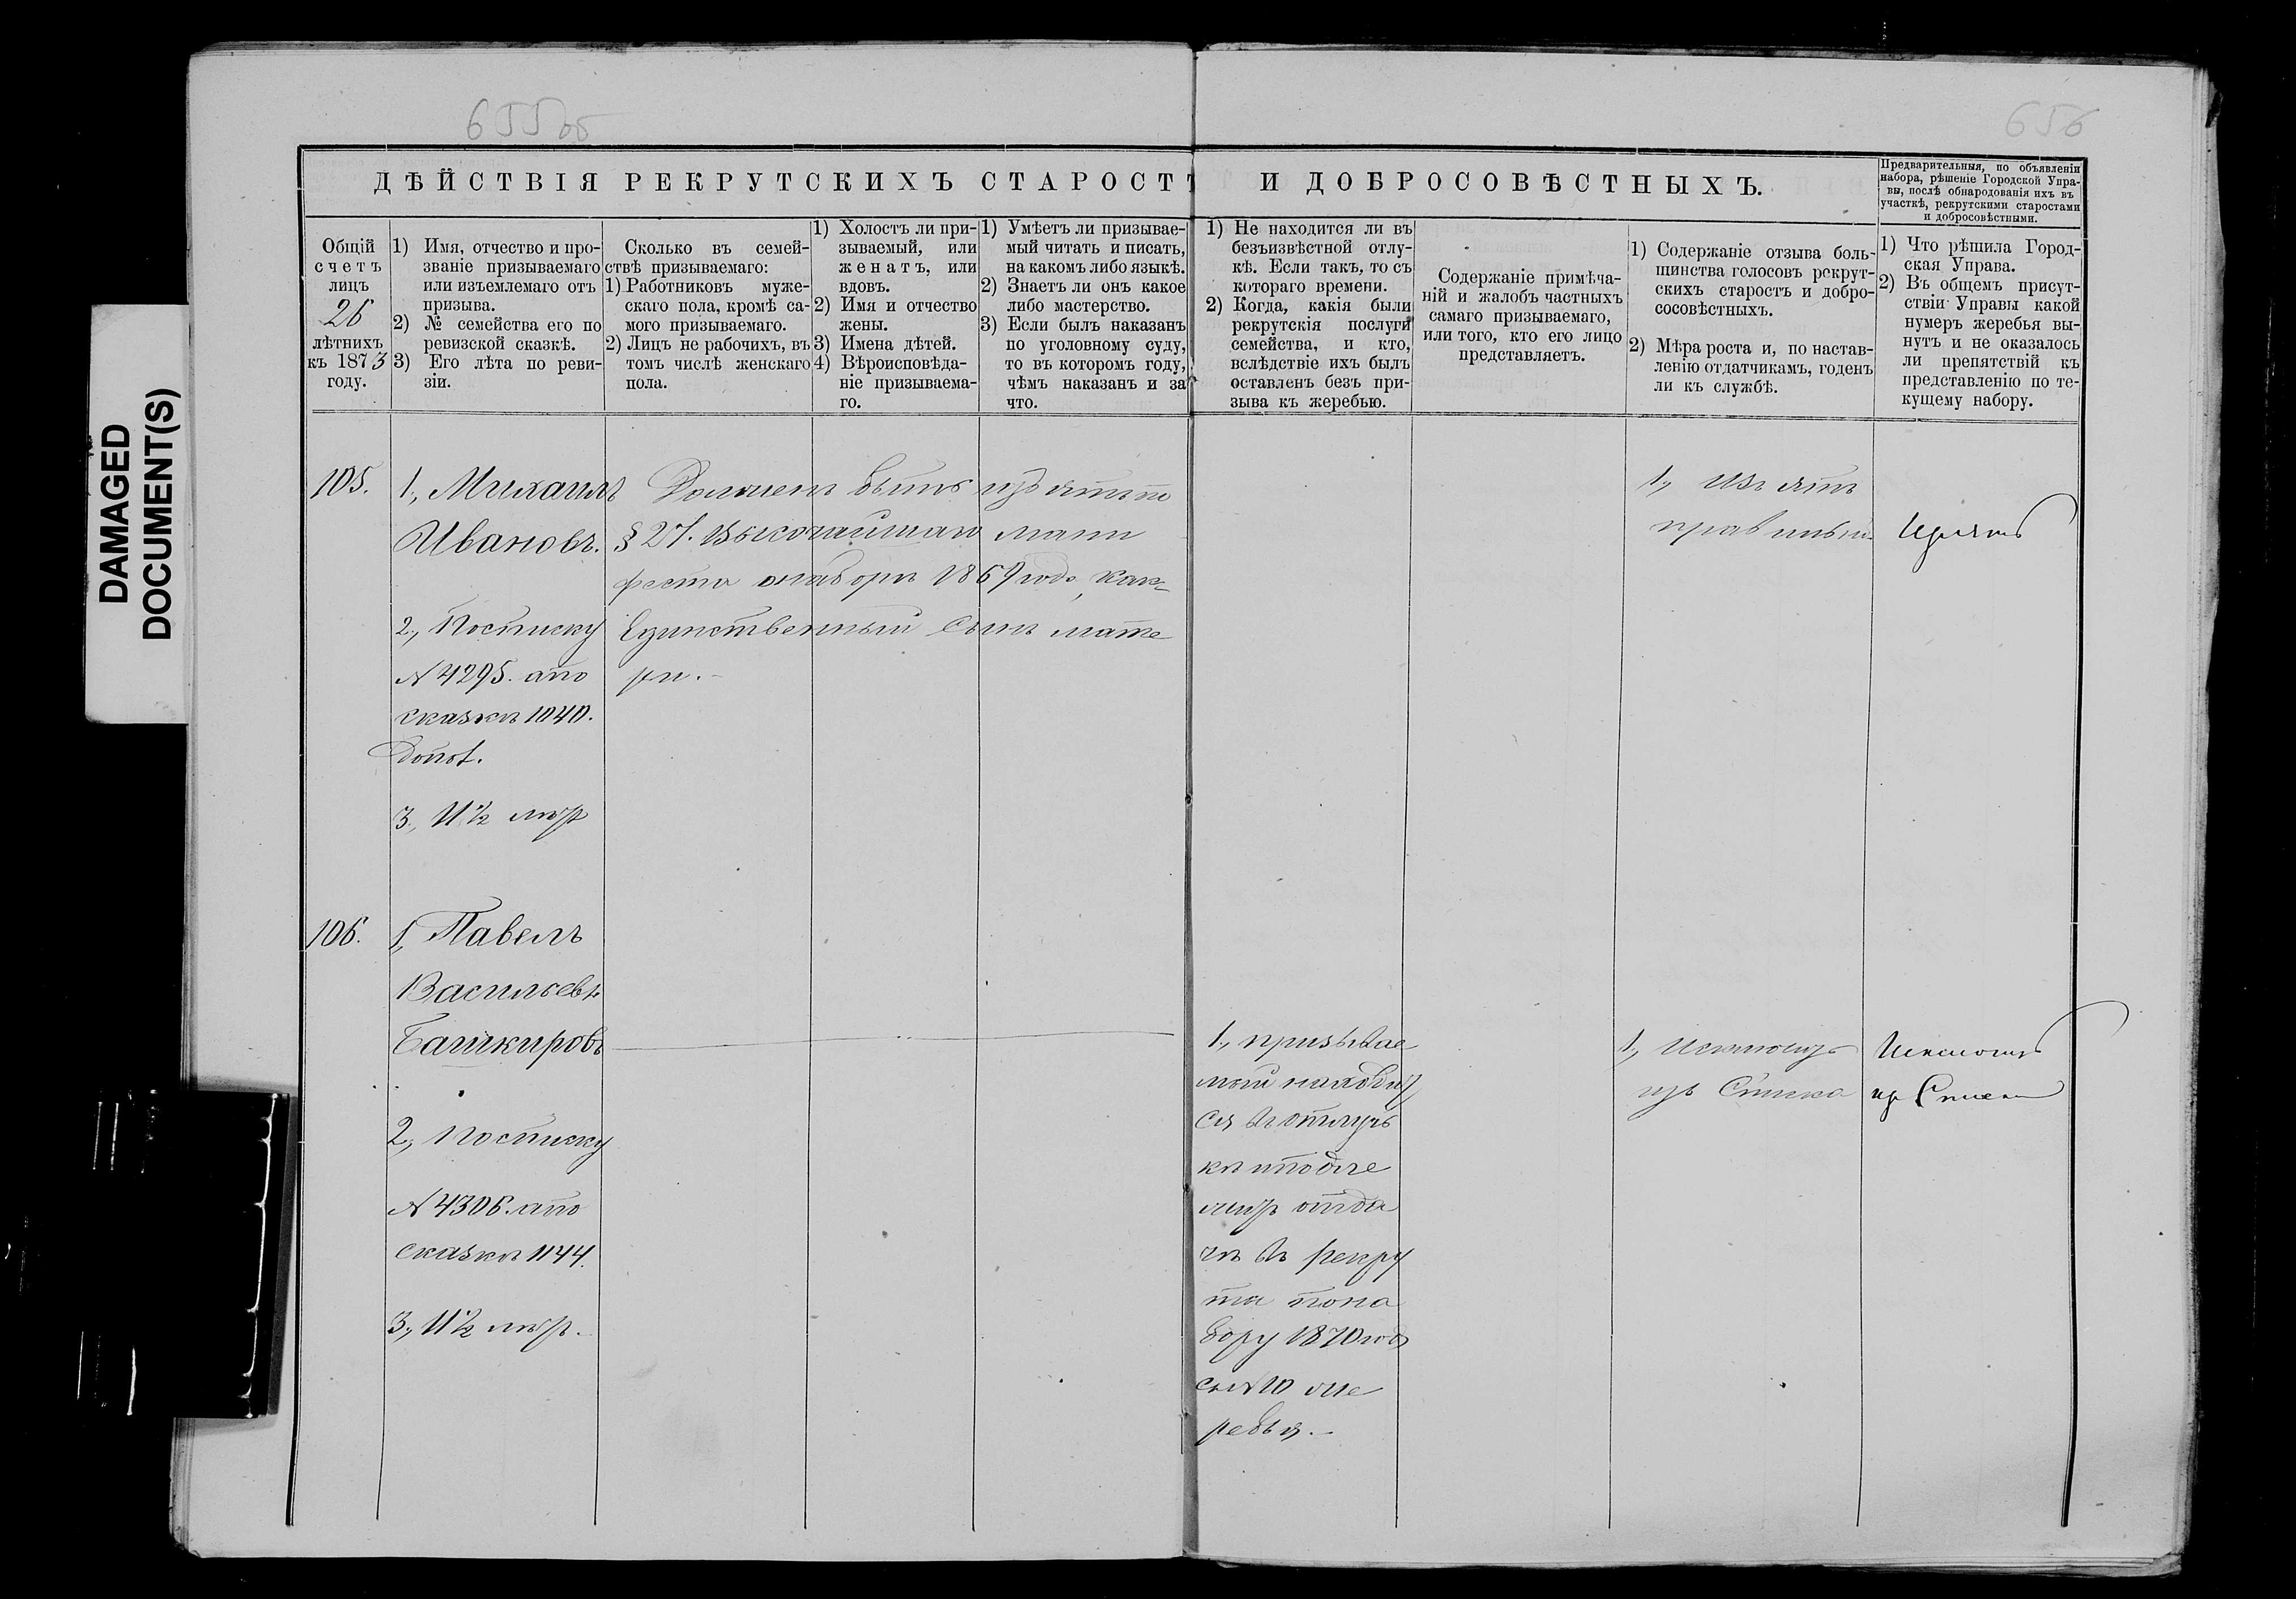 655об
656
DAMAGED
DOCUMENT(S)
ДѢЙСТВІЯ РЕКРУТСКИХЪ СТАРОСТЪ И ДОБРОСОВѢСТНЫХЪ.
Предварительныя, по объявленіи
набора, рѣшеніе Городской Упра-
вы, послѣ обнародованія ихъ въ
участкѣ, рекрутскими старостами
и добросовѣстными.
Общій
счетъ
лицъ
26
лѣтнихъ
къ 1873
году.
1) Имя, отчество и про-
званіе призываемаго
или изъемлемаго отъ
призыва.
2) № семейства его по
ревизской сказкѣ.
3) Его лѣта по реви-
зіи.
Сколько въ семей-
ствѣ призываемаго:
1) Работниковъ муже-
скаго пола, кромѣ са-
мого призываемаго.
2) Лицъ не рабочихъ, въ
томъ числѣ женскаго
пола.
1) Холостъ ли при-
зываемый, или
женатъ, или
вдовъ.
2) Имя и отчество
жены.
3) Имена дѣтей.
4) Вѣроисповѣда-
ніе призываема-
го.
1) Умѣетъ ли призывае-
мый читать и писать,
на какомъ либо языкѣ.
2) Знаетъ ли онъ какое
либо мастерство.
3) Если былъ наказанъ
по уголовному суду,
то въ которомъ году,
чѣмъ наказанъ и за
что.
1) Не находится ли въ
безъизвѣстной отлу-
кѣ. Если такъ, то съ
котораго времени.
2) Когда, какія были
рекрутскія послуги
семейства, и кто,
вслѣдствіе ихъ былъ
оставленъ безъ при-
зыва къ жеребью.
Содержаніе примѣча-
ній и жалобъ частныхъ
самаго призываемаго,
или того, кто его лицо
представляетъ.
1) Содержаніе отзыва боль-
шинства голосовъ рекрут-
скихъ старостъ и добро-
сосовѣстныхъ.
2) Мѣра роста и, по настав-
ленію отдатчикамъ, годенъ
ли къ службѣ.
1) Что рѣшила Город-
ская Управа.
2) Въ общемъ присут-
ствіи Управы какой
нумеръ жеребья вы-
нутъ и не оказалось
ли препятствій къ
представленію по те-
кущему набору.
105.
1., Михаилъ
Ивановъ.
2., Посписку
№ 4295. апо
сказкѣ 1040.
Допол.
3., 11½ лѣтъ
Долженъ быть изъятъ по
§ 27. Высочайшаго мани
феста онаборѣ 1869 года, какъ
Единственный Сынъ мате
ри.-
1., Изъятъ
правильно
Изъять
106.
1., Павелъ
Васильевъ
Башкировъ
2., Посписку
№ 4306. апо
сказкѣ 1144.
3., 11½ лѣтъ.
1., призывае
мый находит
ся въ отлучь
кѣ иподле
житъ отда
чѣ въ рекру
ты пона
бору 1870 года
съ № 10 же
ребья.-
1., Исключить
изъ Списка
Исключить
изъ Списка